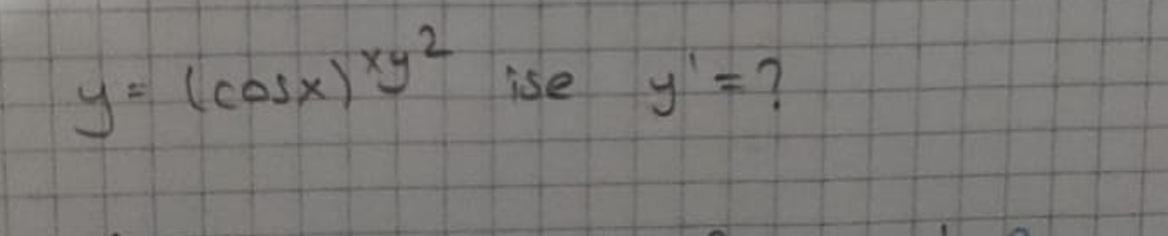 y = (cosx)^xy² ise y' = ?